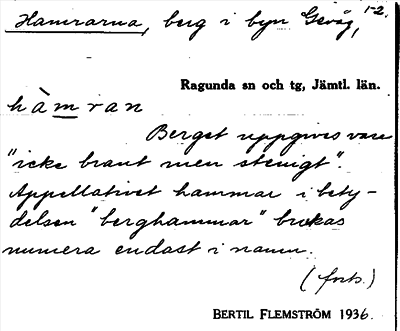 Hamrarna, berg i byn Gevåg, 1-2.
Ragunda sn och tg, Jämtl. län.
hàmran
Berget uppgives vara
"icke brant men stenigt".
Appellativet hammar i bety-
delsen "berghammar" brukas
numera endast i namn.
(forts.)
BERTIL FLEMSTRÖM 1936.